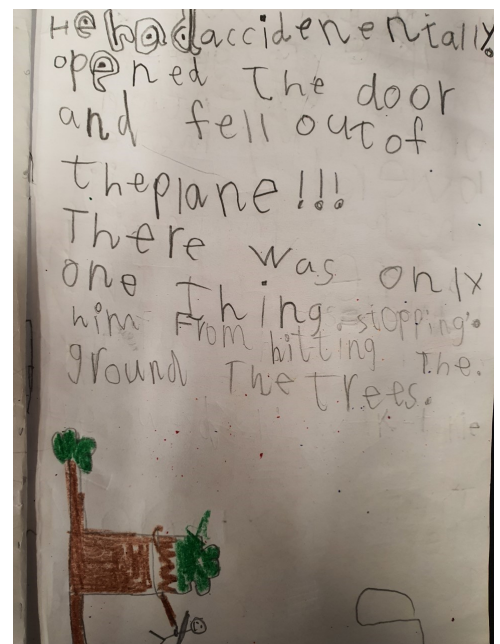 He had accidenentally
opened The door
and fell out of
theplane!!!
There was only
one Thing stopping
him From hitting The.
ground The trees.